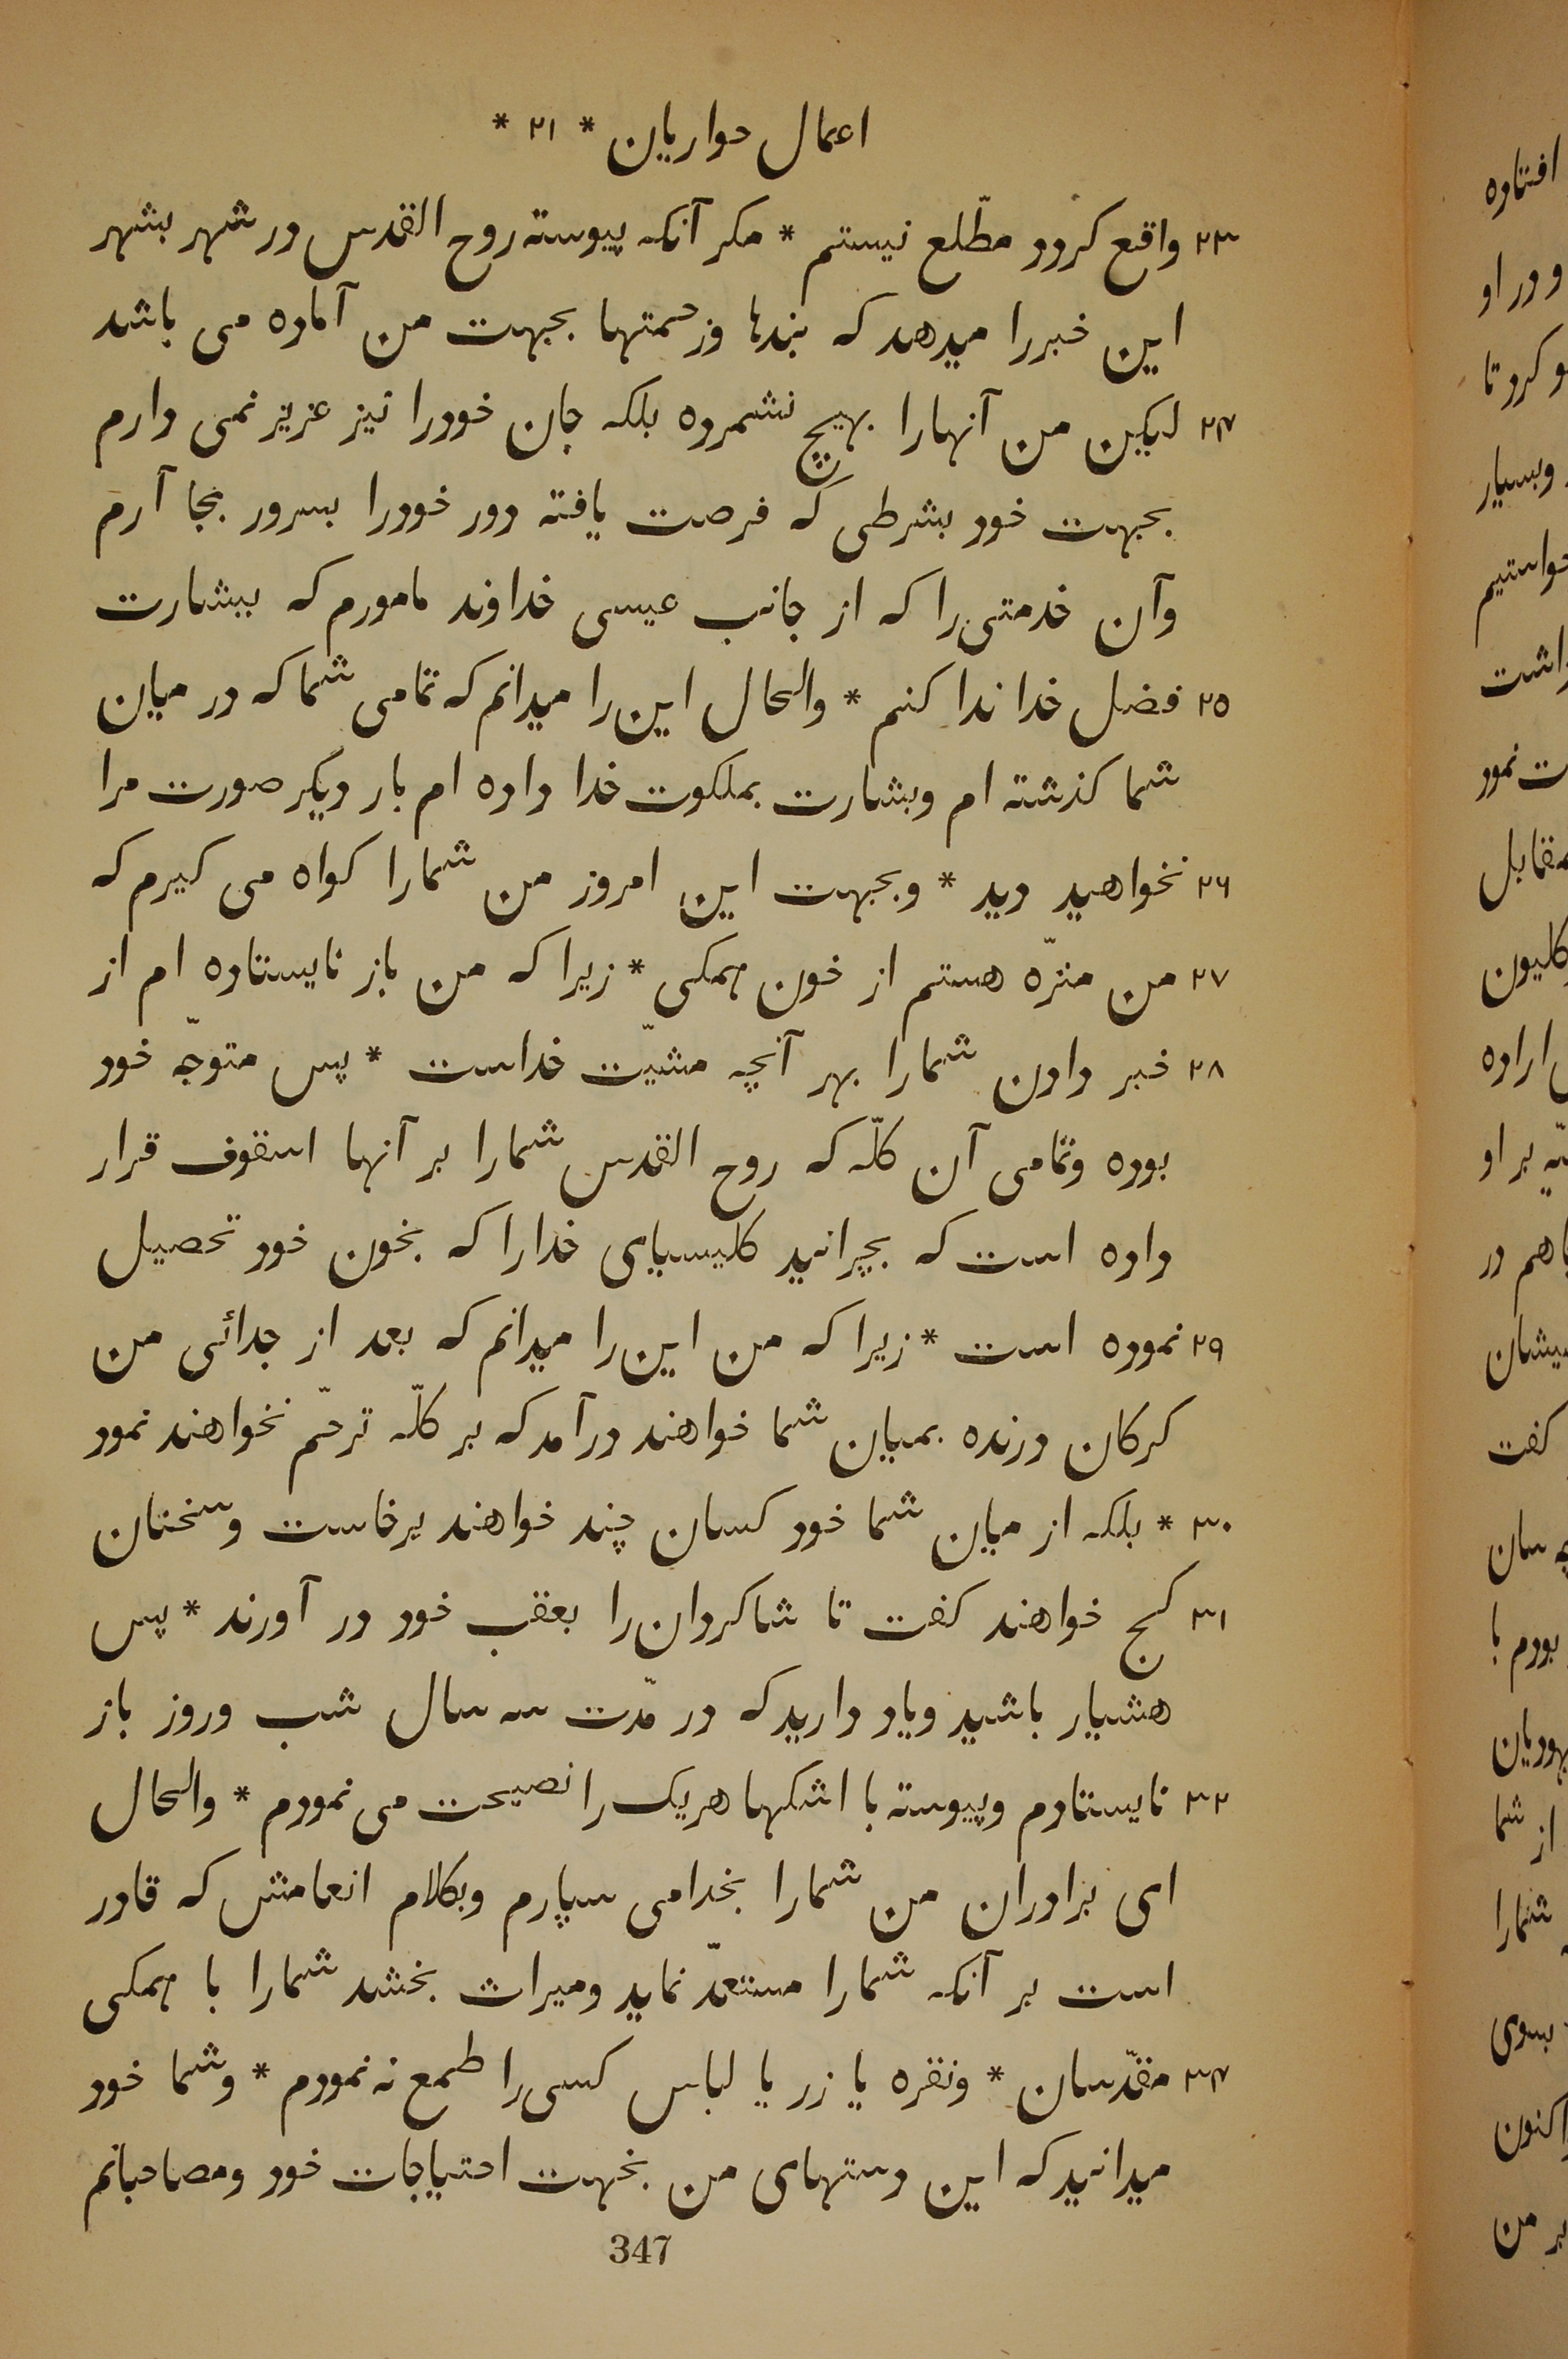 اعمال حواریان * ۲۱ *
۲۳ واقع کردد مطّلع نیستم * مکر آنکه پیوسته روح القدس در شهر بشهر
این خبررا میدهد که بندها وزحمتها بجهت من آماده می باشد
۲۴ لیکین من آنهارا بهیچ نشمرده بلکه جان خودرا نیز عزیز نمی دارم
بجهت خود بشرطی که فرصت یافته دور خودرا بسرور بجا آرم
وآن خدمتی‌را که از جانب عیسی خداوند مامورم که ببشارت
۲۵ فضل خدا ندا کنم * والحال این‌را میدانم که تمامی شما که در میان
شما کذشته ام وبشارت بملکوت خدا داده ام بار دیکر صورت مرا
۲۶ نخواهید دید * وبجهت این امروز من شمارا کواه می کیرم که
۲۷ من منزّه هستم از خون همکی * زیرا که من باز نایستاده ام از
۲۸ خبر دادن شمارا بهر آنچه مشیّت خداست * پس متوجّه خود
بوده وتمامی آن کلّه که روح القدس شمارا بر آنها اسقوف قرار
داده است که بچرانید کلیسیای خدارا که بخون خود تحصیل
۲۹ نموده است * زیرا که من این‌را میدانم که بعد از جدائی من
کرکان درنده بمیان شما خواهند درآمد که بر کلّه ترحّم نخواهند نمود
۳۰ * بلکه از میان شما خود کسان چند خواهند برخاست وسخنان
۳۱ کج خواهند کفت تا شاکردان‌را بعقب خود در آورند * پس
هشیار باشید ویاد دارید که در مدّت سه سال شب وروز باز
۳۲ نایستادم وپیوسته با اشکها هریک را نصیحت می نمودم * والحال
ای برادران من شمارا بخدامی سپارم وبکلام انعامش که قادر
است بر آنکه شمارا مستعدّ نماید ومیراث بخشد شمارا با همکی
۳۴ مقدّسان * ونقره یا زر یا لباس کسی را طمع نه نمودم * وشما خود
میدانید که این دستهای من بجهت احتیاجات خود ومصاحبانم
347
افتاده
و در او
و کرد تا
وبسیار
ت نمود
کلیون
اراده
بر او
هم در
کفت
سان
بودم با
از شما
شمارا
بسوی
اکنون
بر من